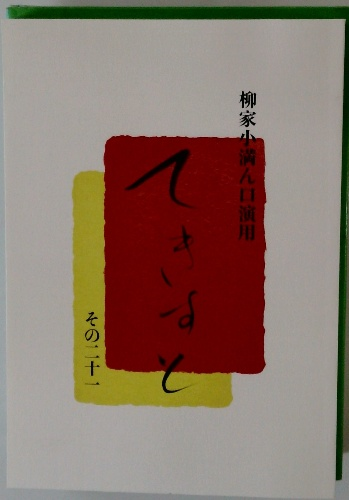 柳家小満ん口演用
てきすと
その二十一